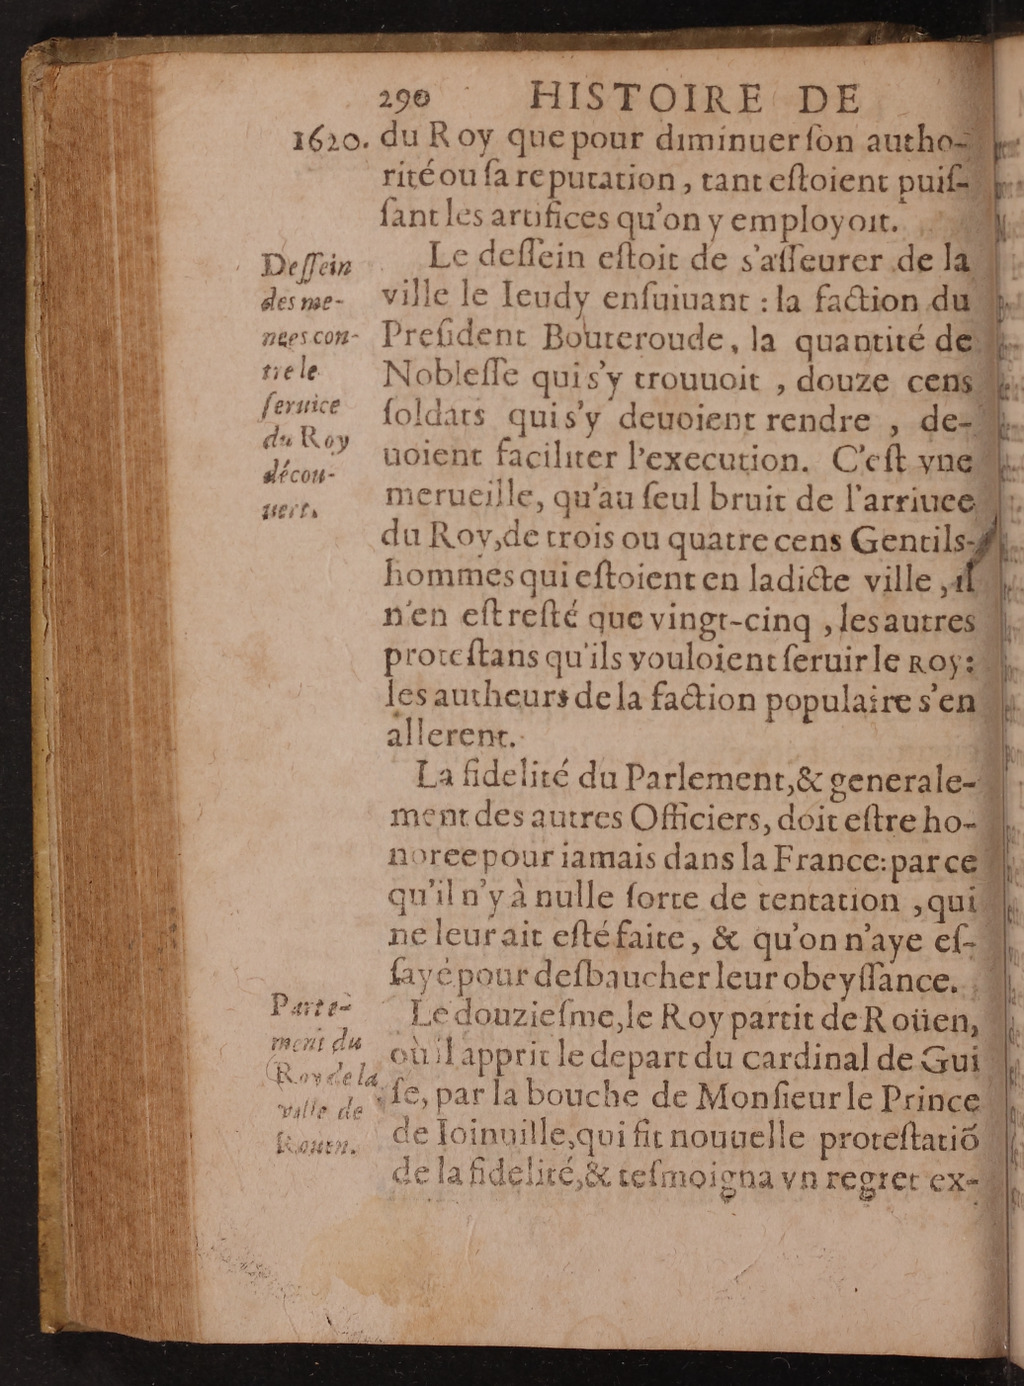 290 HISTOIRE DE
1620. du Roy que pour diminuer ſon autho-
rité ou ſa reputation, tant eſtoient puiſ-
ſant les artifices qu'on y employoit.
Le deſſein eſtoit de s'aſſeurer de la
ville le Ieudy enſuiuant : la faction du
Preſident Bouteroude, la quantité de
Nobleſſe qui s'y trouuoit, douze cens
ſoldats qui s'y deuoient rendre, de-
uoient faciliter l'execution. C'eſt vne
merueille, qu'au ſeul bruit de l'arriuee
du Roy, de trois ou quatre cens Gentils-
hommes qui eſtoient en ladicte ville, il
n'en eſt reſté que vingt-cinq, les autres
proteſtans qu'ils vouloient ſeruir le Roy:
les autheurs de la faction populaire s'en
allerent.
La fidelité du Parlement, & generale-
ment des autres Officiers, doit eſtre ho-
noree pour iamais dans la France: par ce
qu'il n'y à nulle ſorte de tentation, qui
ne leur ait eſté faite, & qu'on n'aye eſ-
ſayé pour deſbaucher leur obeyſſance.
Le douzieſme, le Roy partit de Roüen,
où il apprit le depart du cardinal de Gui
ſe, par la bouche de Monſieur le Prince
de Ioinuille, qui fit nouuelle proteſtatiõ
de la fidelité, & teſmoigna vn regret ex-
Deſſein
des me-
nees con-
tre le
ſeruice
du Roy
décou-
uert.
Parte-
ment du
Roy de la
ville de
Rouen.